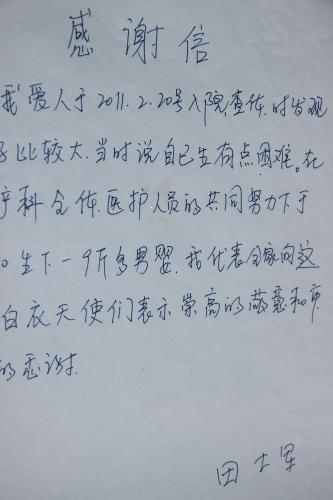 感谢信
我爱人于2011.2.20号入院,查体时发现
子比较大.当时说自己生有点困难.在
产科全体医护人员的共同努力下于
0生下一9斤多男婴.我代表全家向这
白衣天使们表示崇高的敬意和
的感谢.
田士军